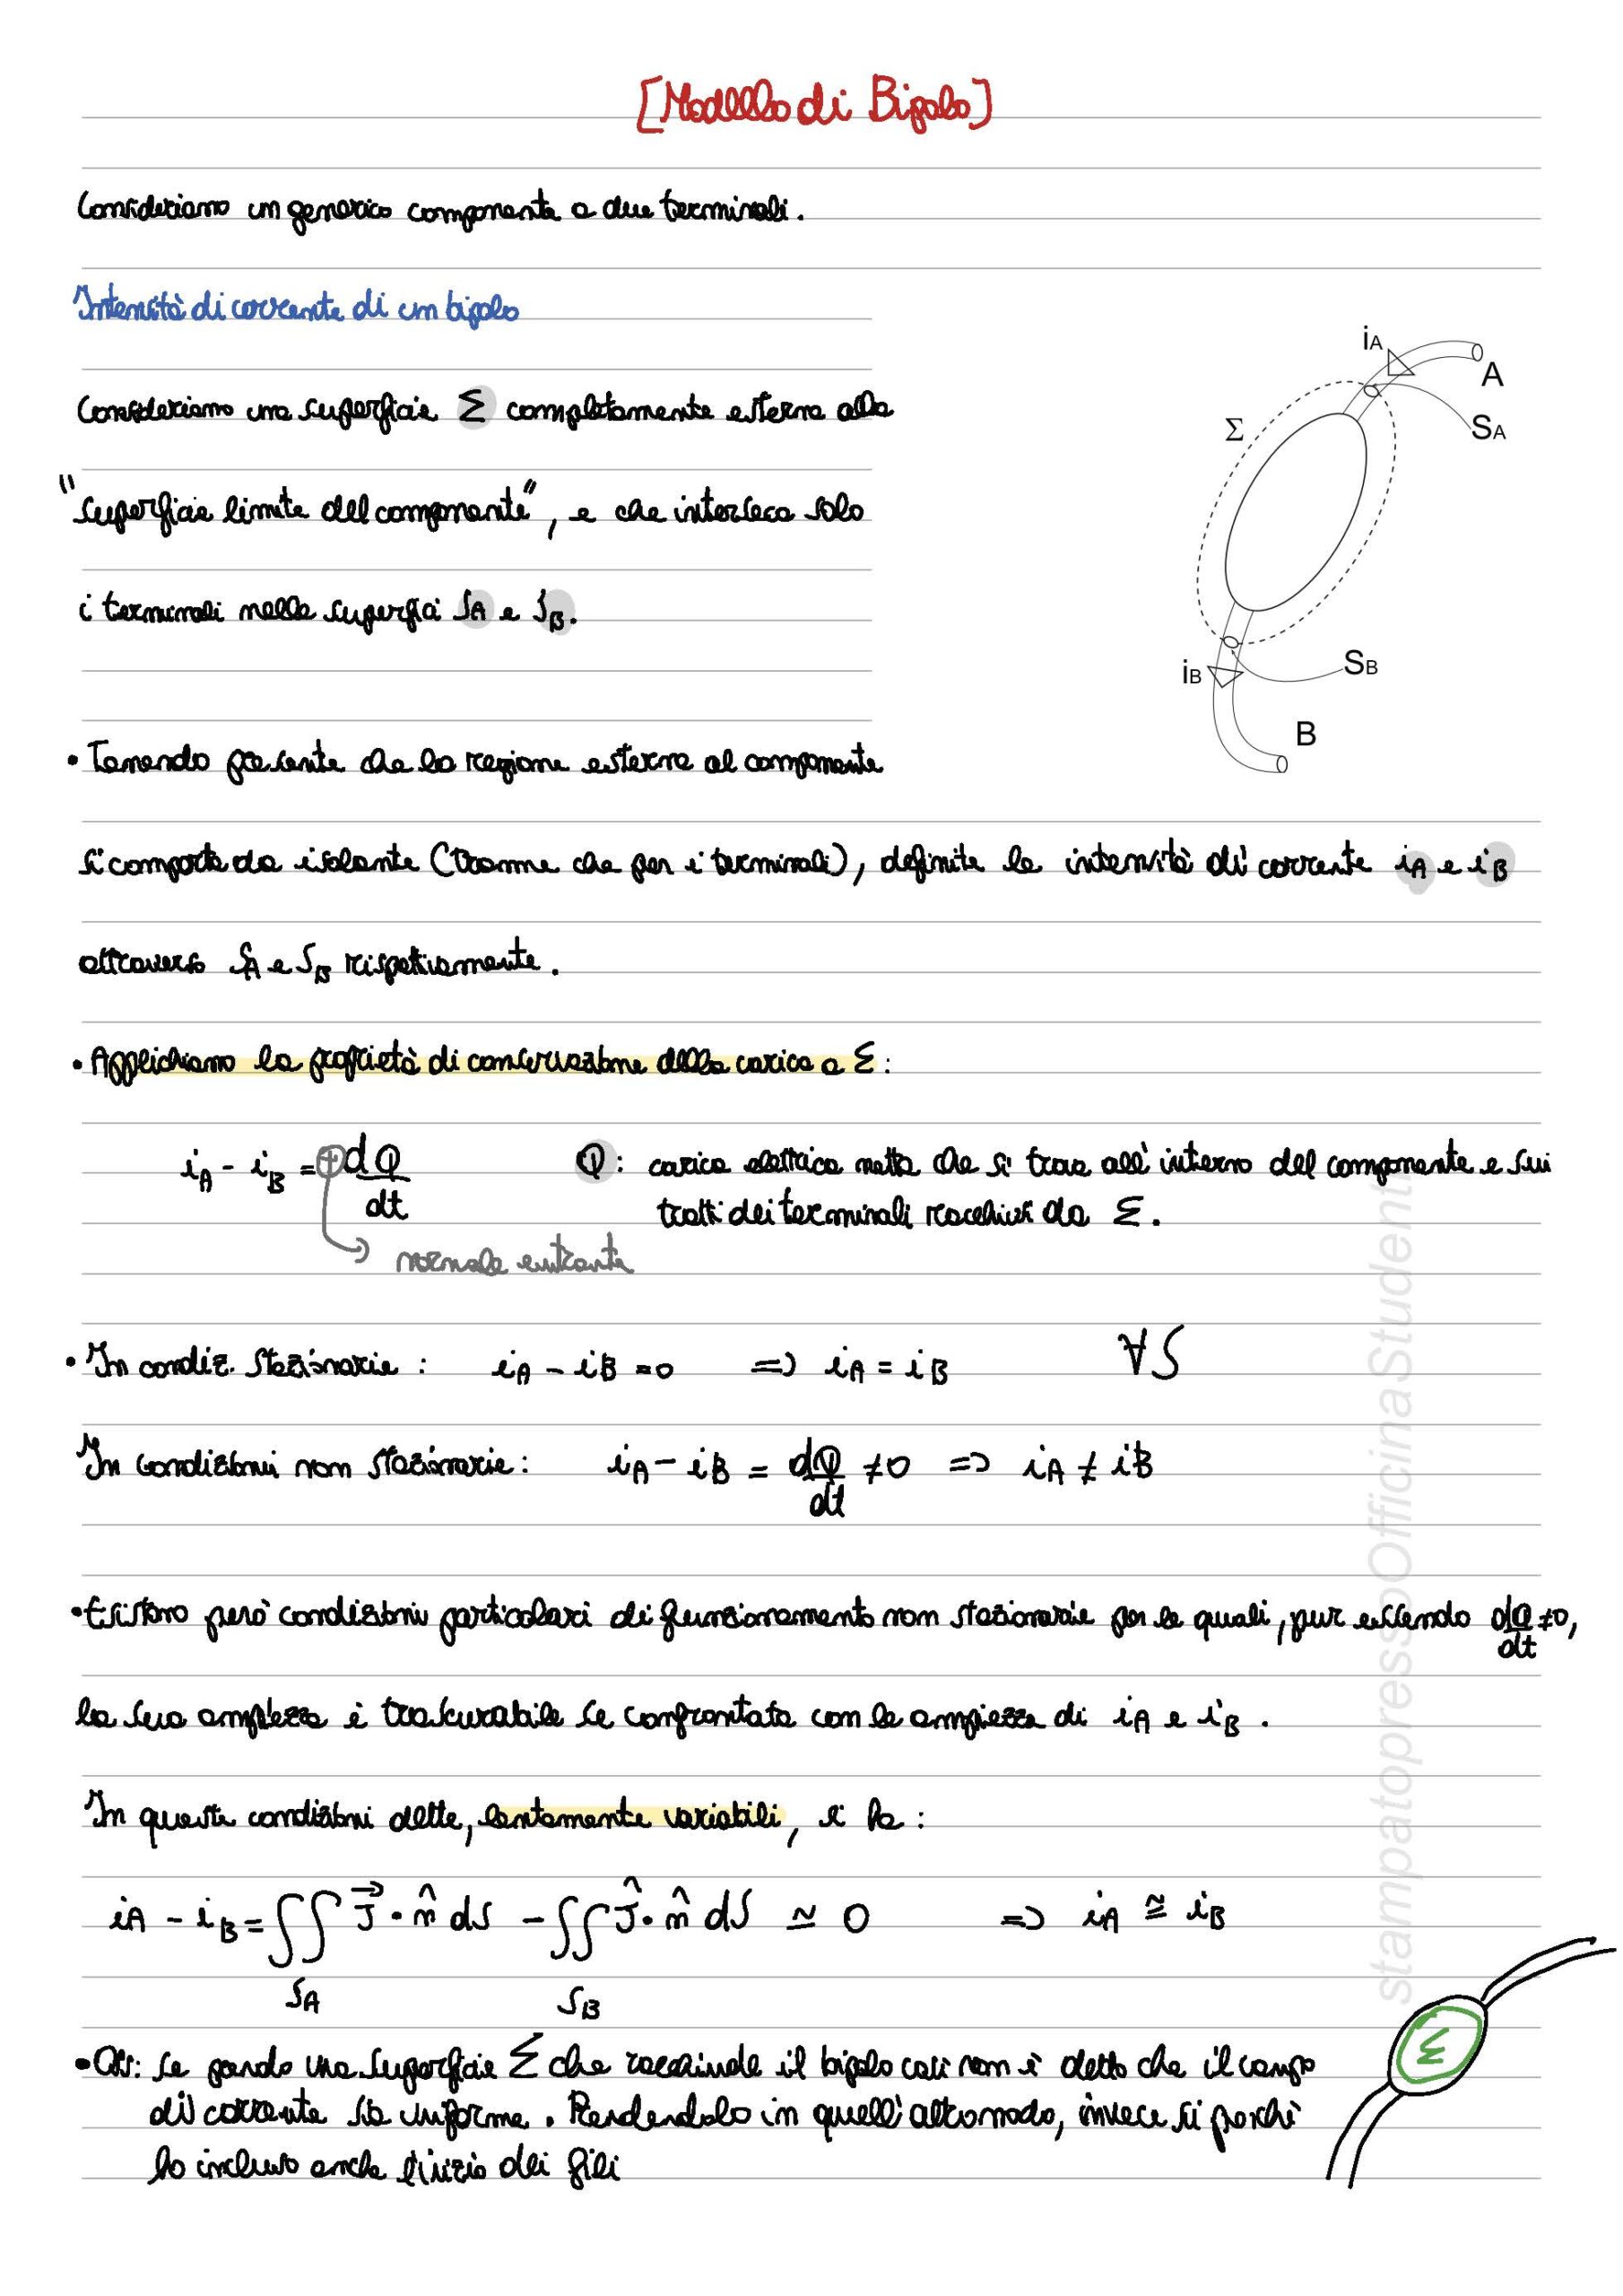 [Modello di Bipolo]
Consideriamo un generico componente a due terminali.
Intensità di corrente di un bipolo
Consideriamo una superficie Σ completamente esterna alla
"superficie limite del componente", e che interseca solo
i terminali nelle superfici SA e SB.
iA
A
Σ
SA
SB
iB
B
• Tenendo presente che la regione esterna al componente
si comporta da isolante (tranne che per i terminali), definite le intensità di corrente iA e iB
attraverso SA e SB rispettivamente.
• Applichiamo la proprietà di conservazione della carica a Σ:
iA - iB = + dQ/dt   Q: carica elettrica netta che si trova all'interno del componente e sui
tratti dei terminali racchiusi da Σ.
normale entrante
• In condiz. stazionarie: iA - iB = 0 => iA = iB ∀S
In condizioni non stazionarie: iA - iB = dQ/dt ≠ 0 => iA ≠ iB
• Esistono però condizioni particolari di funzionamento non stazionarie per le quali, pur essendo dQ/dt ≠ 0,
la sua ampiezza è trascurabile se confrontata con le ampiezza di iA e iB.
In queste condizioni dette, lentamente variabili, si ha:
iA - iB = ∬SA J⃗ · n̂ dS - ∬SB Ĵ · n̂ dS ≃ 0 => iA ≅ iB
• Oss: se prendo una superficie Σ che racchiude il bipolo così non è detto che il campo
di corrente sia uniforme. Prendendolo in quell'altro modo, invece si perché
ho incluso anche l'inizio dei fili
Σ
stampatopressoOfficinaStudenti